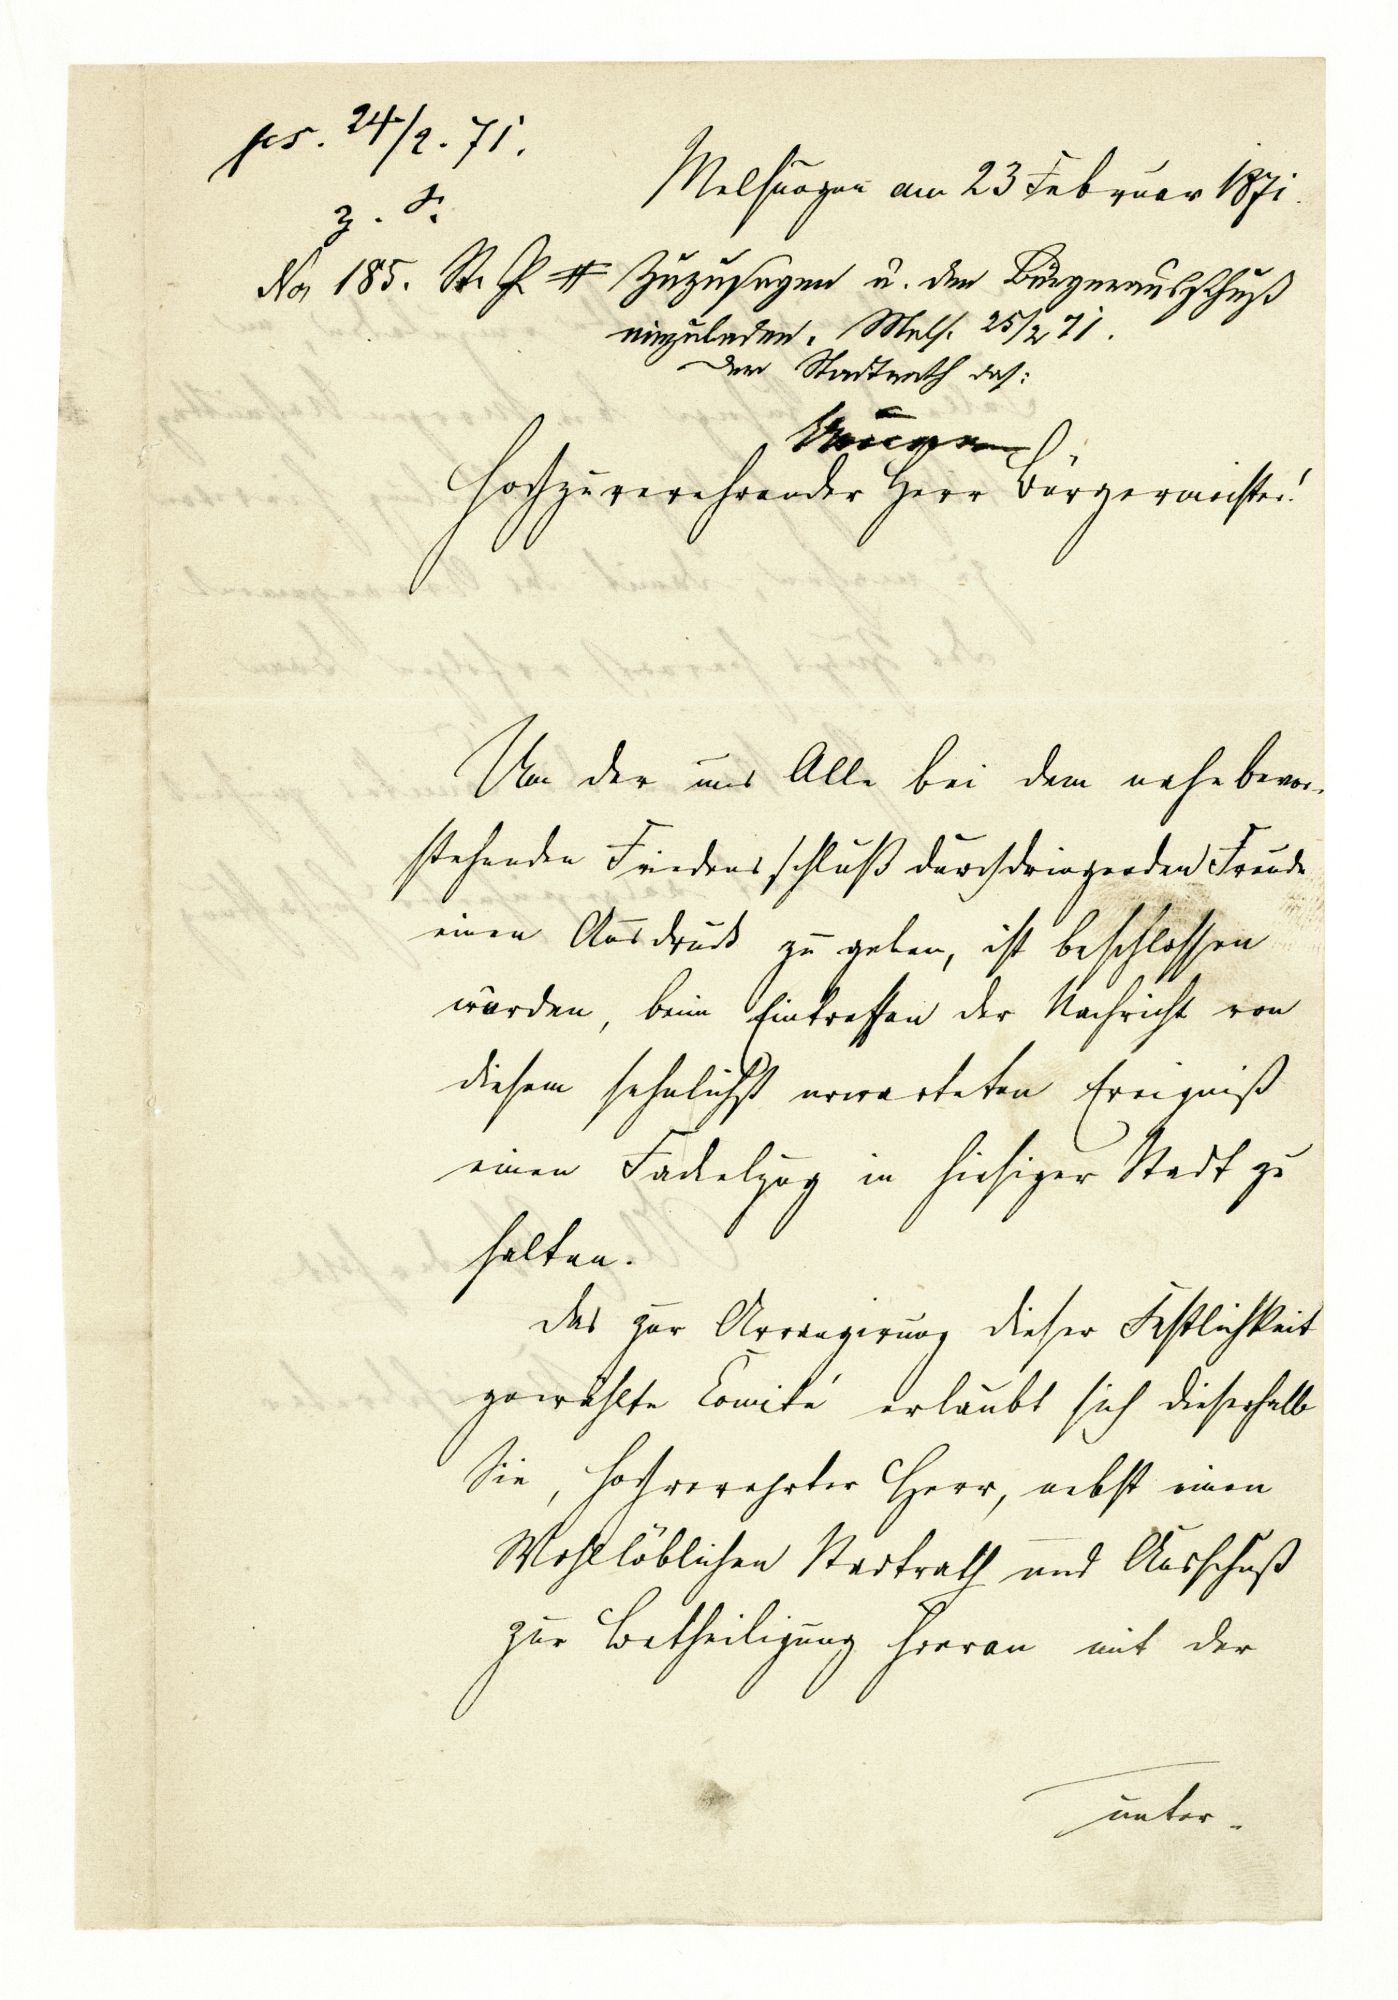 ps. 24/2. 71.
Melsungen am 23 Februar 1871.
z. S.
No 185. St. P. # Zuzusagen u. den Bürgerausschuß
einzuladen. Mels. 25/2 71.
Der Stadtrath das:
Hochzuverehrender Herr Bürgermeister!
Um der uns Alle bei dem nahe bevor-
stehenden Friedensschluß durchdringenden Freude
einen Ausdruck zu geben, ist beschlossen
worden, beim Eintreffen der Nachricht von
diesem sehnlichst erwarteten Ereigniß
einen Fackelzug in hiesiger Stadt zu
halten.
Das zur Arrangirung dieser Festlichkeit
gewählte Comité erlaubt sich dieserhalb
Sie, hochverehrter Herr, nebst einen
Wohllöblichen Stadtrath und Ausschuß
zur Betheiligung hieran mit der
unter-